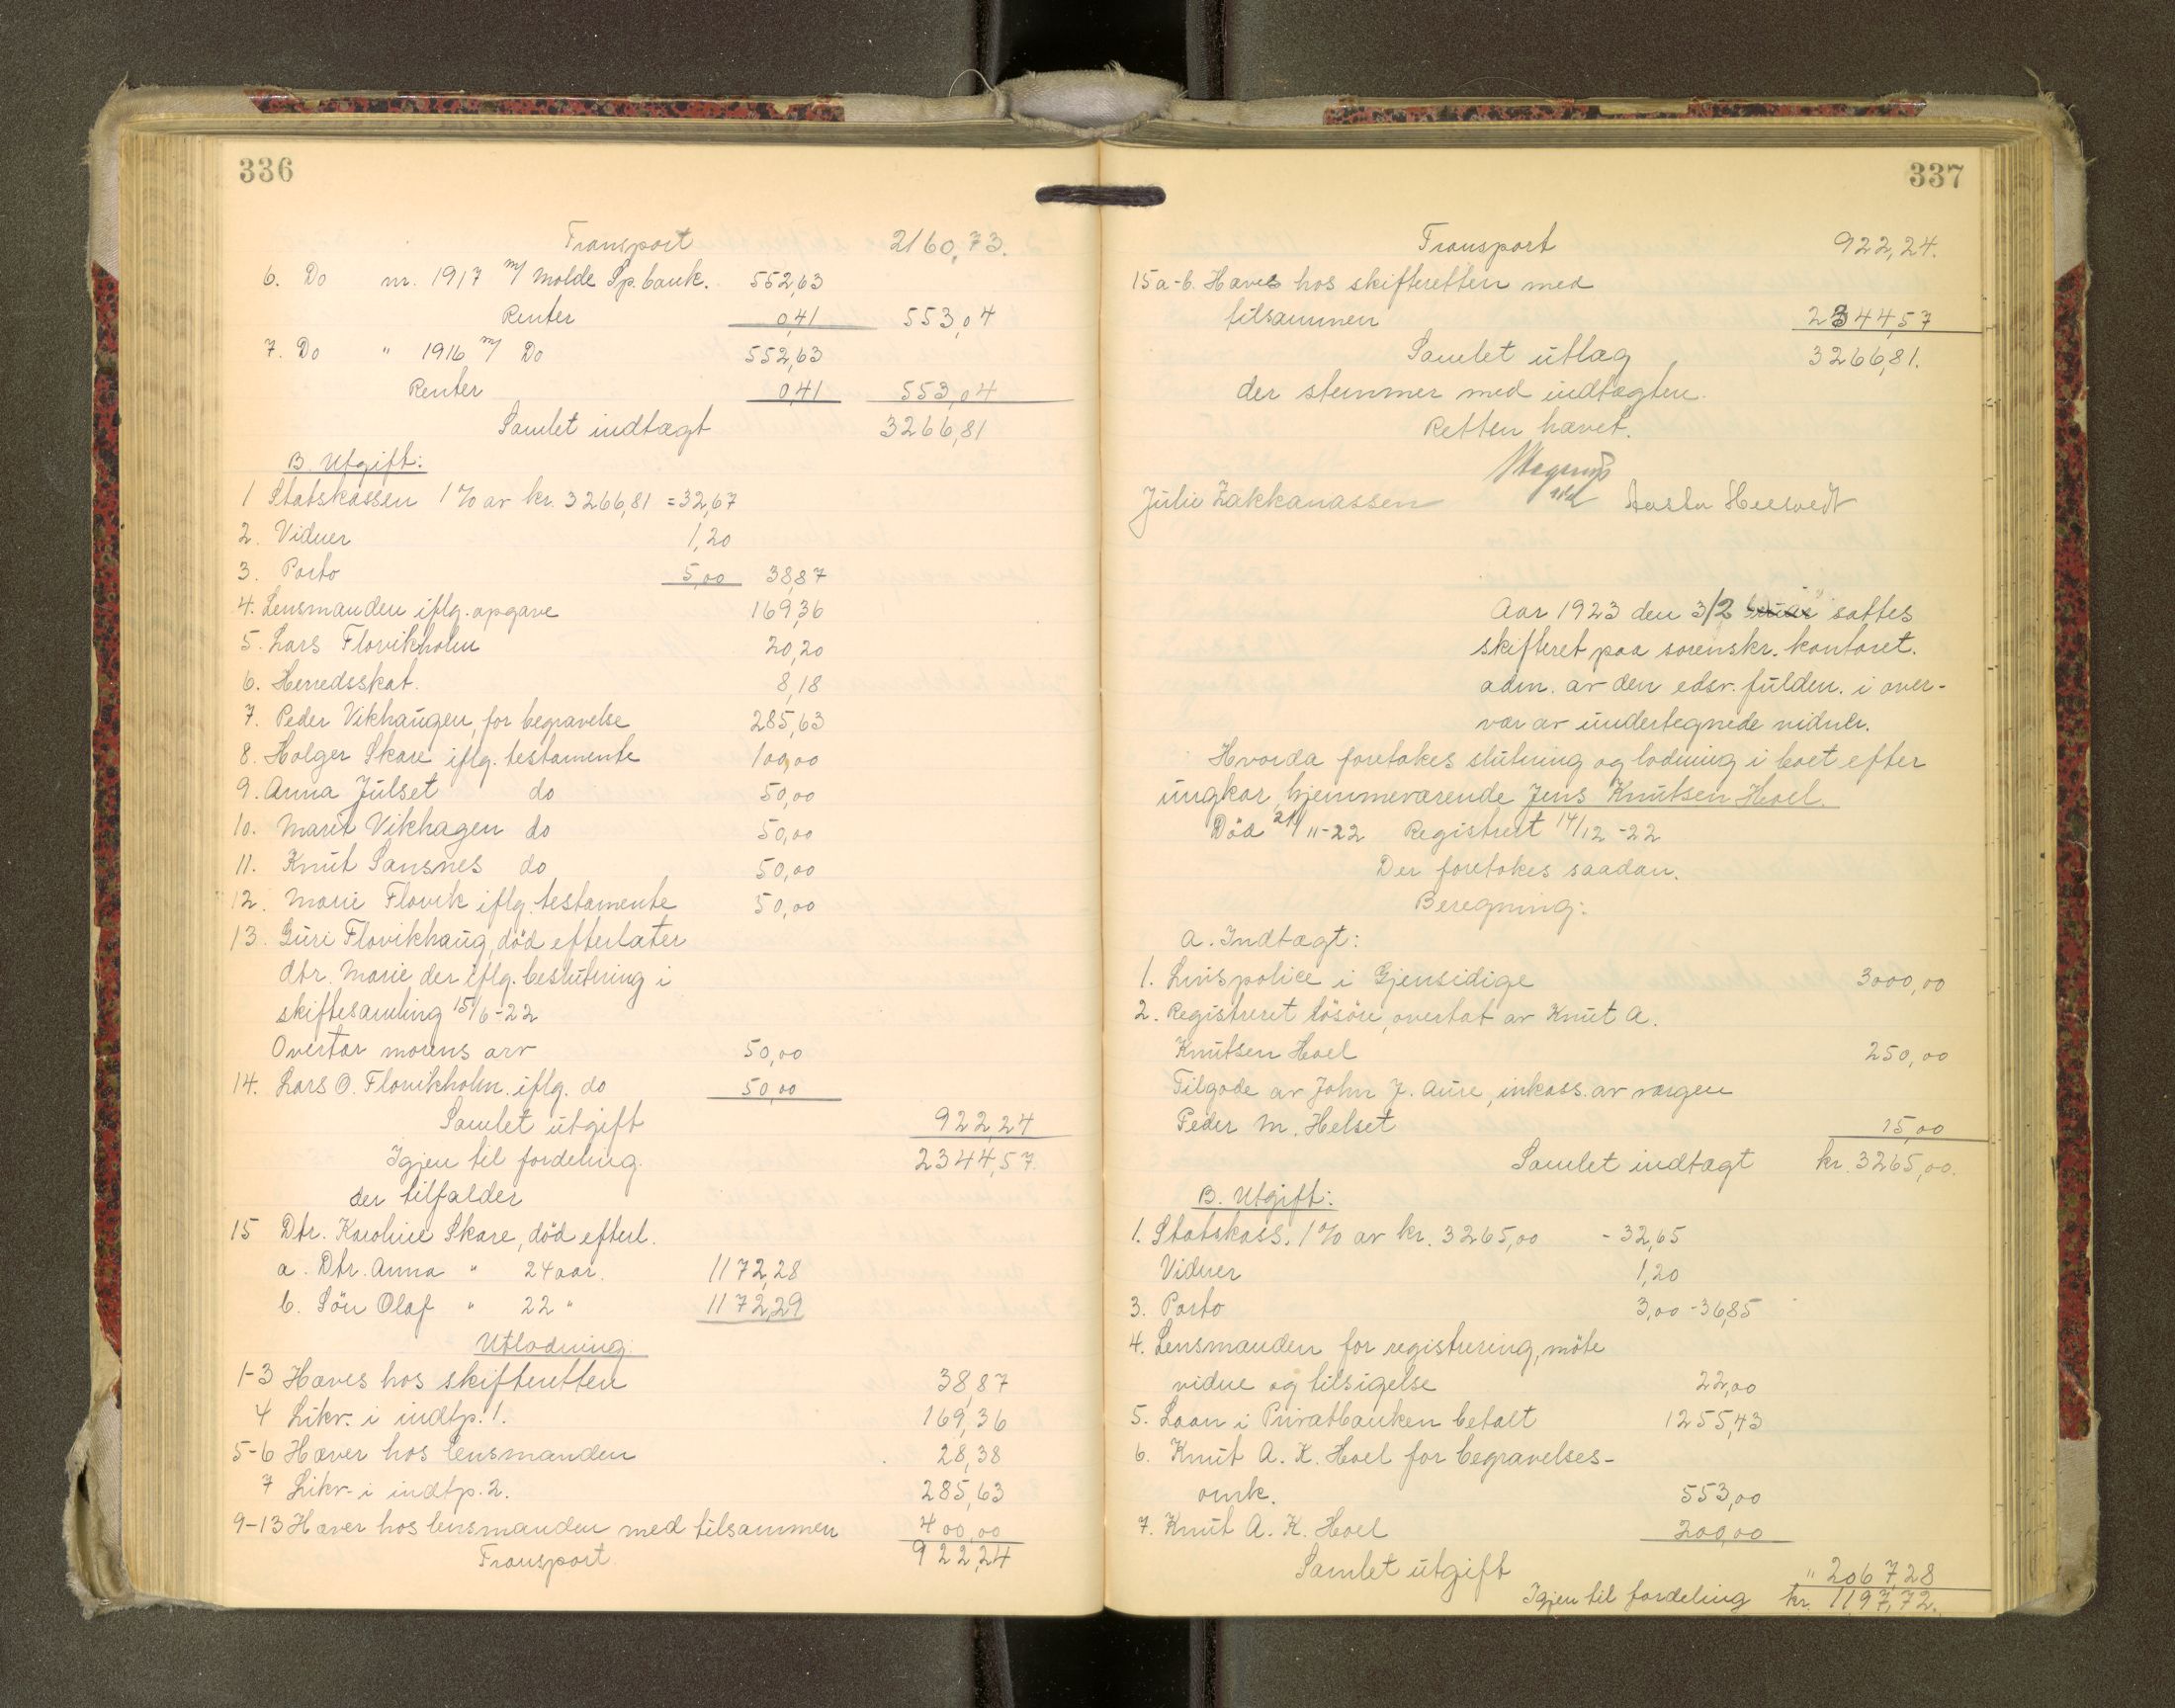 336
Transport 2160,73.
6. Do nr. 1917 m/ Molde Sp.bank. 552,63
Renter 0,41 553,04
7. Do " 1916 m/ Do 552,63
Renter 0,41 553,04
Samlet indtægt 3266,81
B. Utgift:
1 Statskassen 1% av kr. 3266,81 = 32,67
2. Vidner 1,20
3. Porto 5,00 38,87
4. Lensmanden iflg. opgave 169,36
5. Lars Flovikholm 20,20
6. Herredsskat. 8,18
7. Peder Vikhaugen, for begravelse 285,63
8. Holger Skare iflg. testamente 100,00
9. Anna Julset do 50,00
10. Marit Vikhagen do 50,00
11. Knut Sansnes do 50,00
12. Marie Flovik iflg. testamente 50,00
13. Guri Flovikhaug, död efterlater
dtr. Marie der iflg. beslutning i
skiftesamling 15/6-22
Overtar morens arv 50,00
14. Lars O. Flovikholm. iflg. do 50,00
Samlet utgift 922,24
Igjen til fordeling. 2344,57.
der tilfalder
15 Dtr. Karoline Skare, död efterl.
a. Dtr. Anna " 24 aar. 1172,28
b. Sön Olaf " 22 " 1172,29
Utlodning:
1-3 Hæves hos skifteretten 38,87
4 Likv. i indtp. 1. 169,36
5-6 Hæver hos lensmanden 28,38
7 Likv. i indtp. 2. 285,63
9-13 Hæver hos lensmanden med tilsammen 400,00
Transport 922,24
337
Transport 922,24.
15a-b. Hæves hos skifteretten med
tilsammen 2344,57
Samlet utlæg 3266,81.
der stemmer med indtægten.
Retten hævet.
Julie Zakkariassen
Aar 1923 den 3/2 sattes
skifteret paa sorenskr. kontoret.
adm. av den edsv. fuldm. i over-
vær av undertegnede vidner.
Hvorda foretokes slutning og lodning i boet efter
ungkar, hjemmeværende Jens Knutsen Hoel.
Död 21/11-22 Registrert 14/12-22
Der foretokes saadan.
Beregning:
A. Indtægt:
1. Livspolice i Gjensidige 3000,00
2. Registreret lösöre, overtat av Knut A.
Knutsen Hoel 250,00
Tilgode av John J. Aure, inkass. av vergen
Peder M. Helset 15,00
Samlet indtægt kr. 3265,00.
B. Utgift:
1. Statskass. 1% av kr. 3265,00 - 32,65
Vidner 1,20
3. Porto 3,00 - 36,85
4. Lensmanden for registrering, möte
vidne og tilsigelse 22,00
5. Laan i Privatbanken betalt 1255,43
6. Knut A. K. Hoel for begravelses-
omk. 553,00
7. Knut A. K. Hoel 200,00
Samlet utgift " 2067,28
Igjen til fordeling kr. 1197,72.